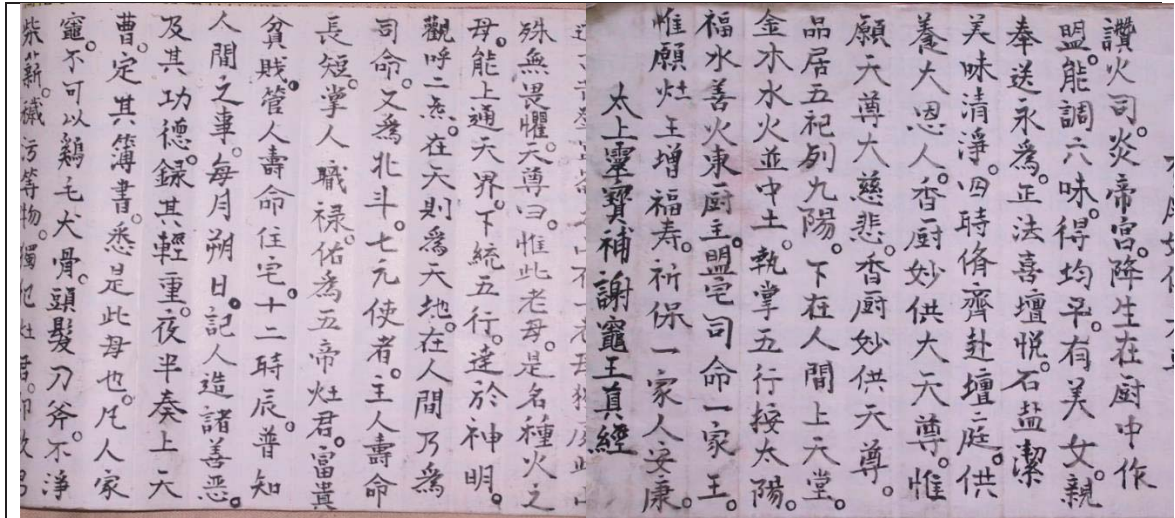 讚火司。炎帝宫。降生在厨中作
盟。能調六味。得均平。有美女。親
奉送永爲。正法喜壇悦。石盐潔
美味清淨。四時脩齊赴壇庭。供
養大恩人。香厨妙供大天尊。惟
願天尊大慈悲。香厨妙供天尊。
品居五祀列九陽。下在人間上天堂。
金木水火並中土。執掌五行按太陽。
福水善火東厨王。盟宅司命一家王。
惟願灶王增福寿。祈保一家人安康。
太上靈寳補謝竈王真經
殊無畏懼。天尊曰。惟此老母。是名種火之
母。能上通天界。下統五行。達於神明。
觀呼二炁。在天則爲天地。在人間乃爲
司命。又爲北斗。七元使者。主人壽命
長短。掌人職禄。佑爲五帝灶君。富貴
貧賎。管人壽命住宅。十二時辰。普知
人間之事。每月朔日。記人造諸善惡。
及其功德。録其輕重。夜半奏上天
曹。定其簿書。悉是此母也。凡人家
竈。不可以鷄毛犬骨。頭髮刀斧。不淨
柴薪。穢污等物。